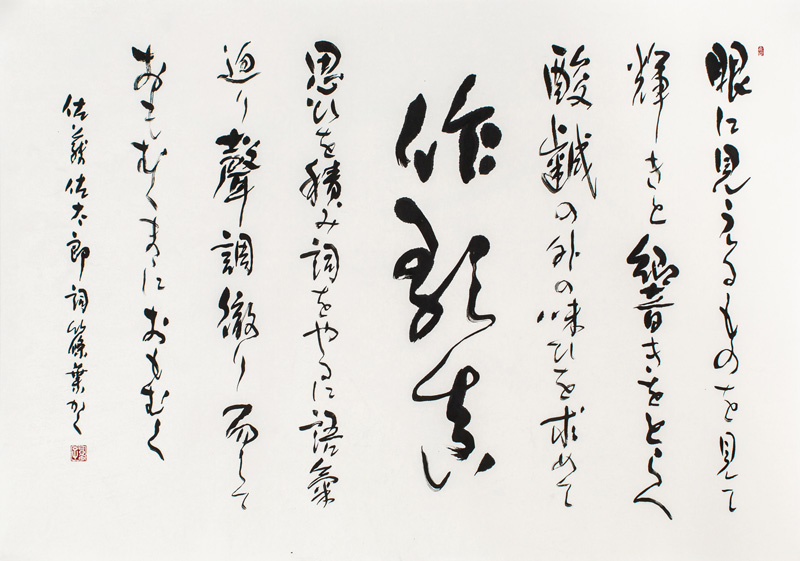 眼に見えるものを見て
輝きと響きをとらへ
酸鹹の外の味ひを求めて
作歌真
思ひを積み詞をやるに語氣
迫り聲調徹り而して
おもむくまゝにおもむく
佐藤佐太郎詞 篠葉かく